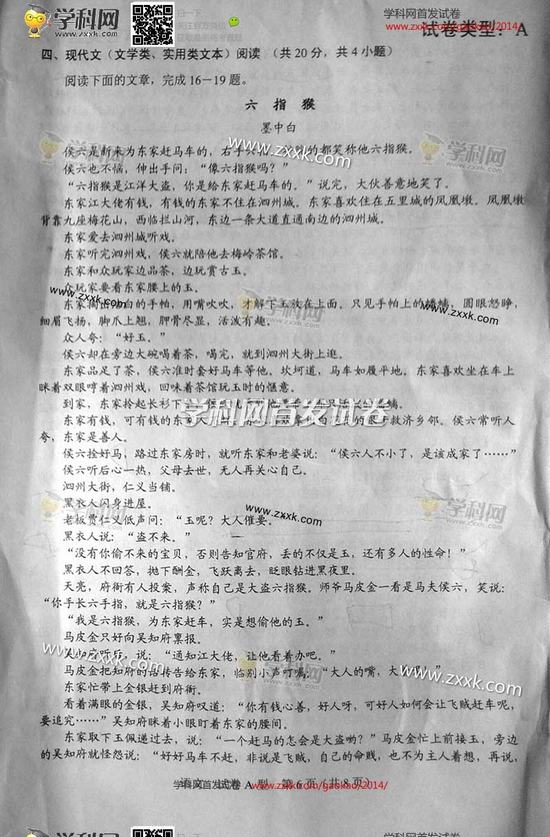 学科网
WWW.ZXXK.COM
学科网首发试卷
www.zxxk.com/gaokao/2014/
试卷类型：A
四、现代文（文学类、实用类文本）阅读 （共20分，共4小题）
阅读下面的文章，完成16－19题。
六 指 猴
墨中白
侯六是新来为东家赶马车的，右手 的都笑称他六指猴。
侯六也不恼，伸出手问：“像六指猴吗？”
“六指猴是江洋大盗，你是给东家赶马车的。”说完，大伙善意地笑了。
东家江大佬有钱，有钱的东家不住在泗州城。东家喜欢住在五里城的凤凰墩。凤凰墩
背靠九座梅花山，西临拦山河，东边一条大道直通南边的泗州城。
东家爱去泗州城听戏。
东家听完泗州戏，侯六就陪他去梅岭茶馆。
东家和众玩家边品茶，边玩赏古玉。
众玩家要看东家腰上的玉。
东家掏出 白的手帕，用嘴吹吹，才解下玉放在上面，只见手帕上的 ，圆眼怒睁，
细眉飞扬，脚爪上翘，胛骨尽显，活泼有趣。
众人夸：“好玉。”
侯六却在旁边大碗喝着茶，喝完，就到泗州大街上逛。
东家品足了茶，侯六准时套好马车等他。坎坷道，马车如履平地。东家喜欢坐在车上
眯着双眼哼着泗州戏，回味着茶馆玩玉时的惬意。
到家，东家拎起长衫下
东家有钱，可有钱的东家 救济乡邻。侯六常听人
夸，东家是善人。
侯六拴好马，路过东家房时，就听东家和老婆说：“侯六人不小了，是该成家了……”
侯六听后心一热，父母去世，无人再关心自己。
泗州大街，仁义当铺。
黑衣人闪身进屋。
老板贾仁义低声问：“玉呢？大人催要。”
黑衣人说：“盗不来。”
“没有你偷不来的宝贝，否则告知官府，丢的不仅是玉，还有多人的性命！”
黑衣人不回答，抛下酬金，飞跃离去，眨眼钻进黑夜里。
天亮，府衙有人投案，声称自己是大盗六指猴。师爷马皮金一看是马夫侯六，笑说：
“你手长六手指，就是六指猴？”
“我是六指猴，为东家赶车，实是想偷他的玉。”
马皮金只好向吴知府禀报。
吴知府听后，说：“通知江大佬，让他看着办吧。”
马皮金把知府的话传告给东家，临别小声叮嘱：“大人的嘴，大
东家忙带上金银赶到府衙。
看着满眼的金银，吴知府叹道：“你有钱心善，好人呀，可好人如何会让飞贼赶车呢，
要追究……”吴知府眯着小眼盯着东家的腰间。
东家取下玉佩递过去，说：“一个赶马的怎会是大盗哟？”马皮金忙上前接玉，旁边
的吴知府就怪怨说：“好好马车不赶，非说是飞贼，自己的命贱，也不为主人着想，再说，
语文 试卷A型 第6页（共8页）